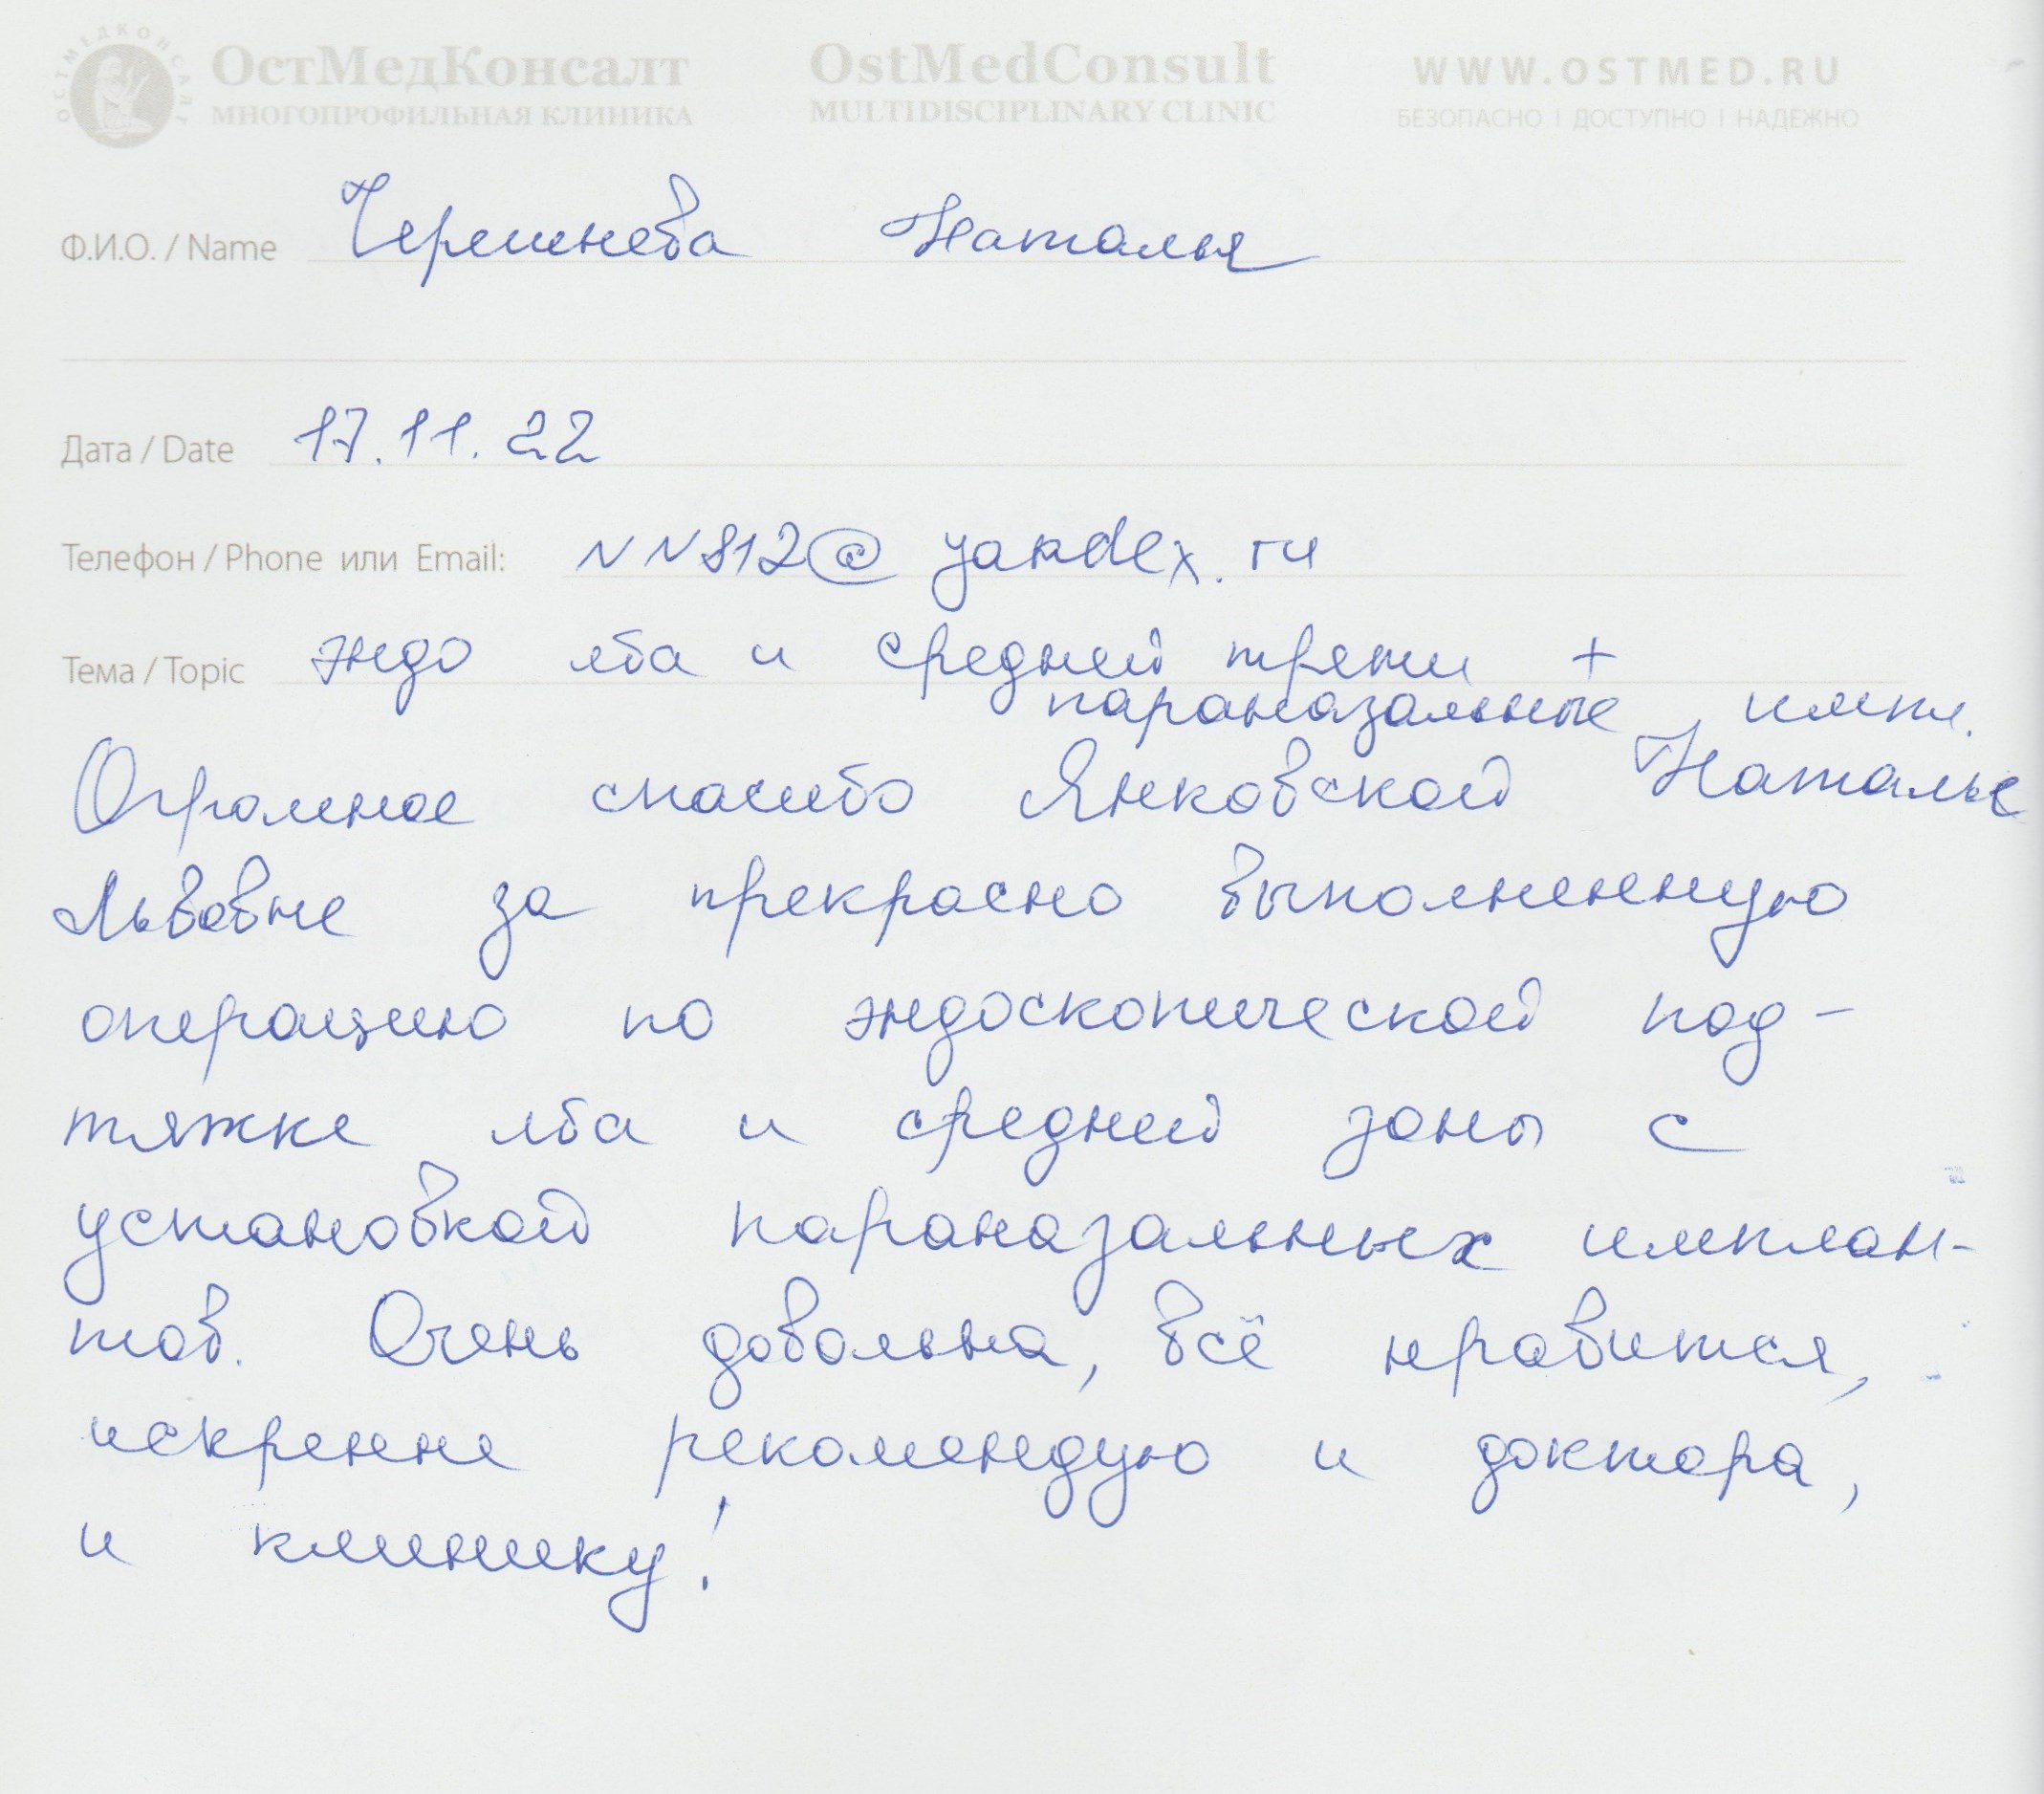 ОстМедКонсалт OstMedConsult WWW.OSTMED.RU
МНОГОПРОФИЛЬНАЯ КЛИНИКА MULTIDISCIPLINARY CLINIC БЕЗОПАСНО | ДОСТУПНО | НАДЕЖНО
ОСТМЕДКОНСАЛТ
Ф.И.О. / Name Черешнева Наталья
Дата / Date 17.11.22
Телефон / Phone или Email: NN812@yandex.ru
Тема / Topic эндо лба и средней трети +
параназальные импл.
Огромное спасибо Янковской Наталье
Львовне за прекрасно выполненную
операцию по эндоскопической под-
тяжке лба и средней зоны с
установкой параназальных имплан-
тов. Очень довольна, всё нравится,
искренне рекомендую и доктора,
и клинику!